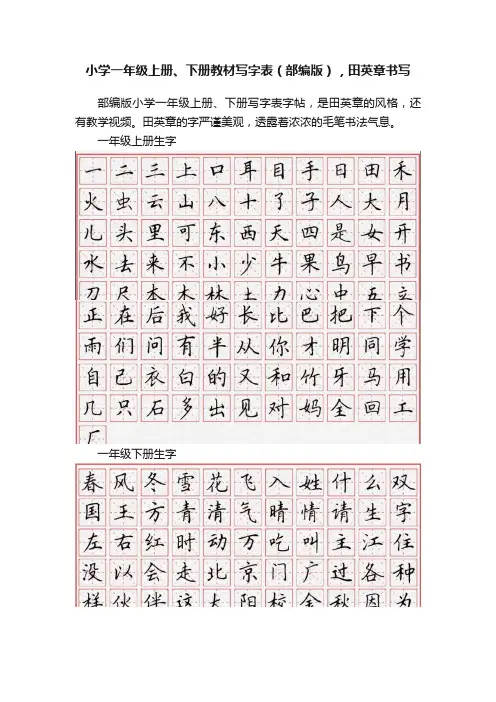 小学一年级上册、下册教材写字表（部编版），田英章书写
部编版小学一年级上册、下册写字表字帖，是田英章的风格，还
有教学视频。田英章的字严谨美观，透露着浓浓的毛笔书法气息。
一年级上册生字
一二三上口耳目手日田禾
火虫云山八十了子人大月
儿头里可东西天四是女开
水去来不小少牛果鸟早书
刀尺本木林土力心中五立
正在后我好长比巴把下个
雨们问有半从你才明同学
自己衣白的又和竹牙马用
几只石多出见对妈全回工
厂
一年级下册生字
春风冬雪花飞入姓什么双
国王方青清气晴情请生字
左右红时动万吃叫主江住
没以会走北京门广过各种
样伙伴这太阳校金秋因为